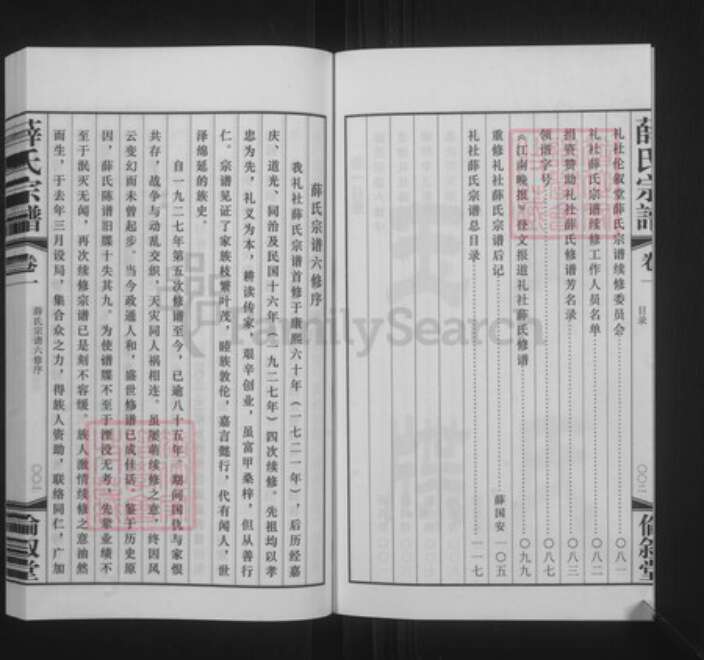 薛氏宗譜
卷一
目录
〇〇二
倫敘堂
礼社伦叙堂薛氏宗谱续修委员会……〇八一
礼社薛氏宗谱续修工作人员名单……〇八二
组资赞助礼社薛氏修谱芳名录……〇八三
领谱字号……〇八七
《江南晚报》登文报道礼社薛氏修谱……〇九九
重修礼社薛氏宗谱后记……薛国安 一〇五
礼社薛氏宗谱总目录……一一七
薛氏宗谱六修序
我礼社薛氏宗谱首修于康熙六十年（一七二一年），后历经嘉
庆、道光、同治及民国十六年（一九二七年）四次续修。先祖均以孝
忠为先，礼义为本，耕读传家，艰辛创业，虽富甲桑梓，但从善行
仁。宗谱见证了家族枝繁叶茂，睦族敦伦，嘉言懿行，代有闻人，世
泽绵延的族史。
自一九二七年第五次修谱至今，已逾八十五年。期间国仇与家恨
共存，战争与动乱交织，天灾同人祸相连。虽屡萌续修之意，终因风
云变幻而未曾起步。当今政通人和，盛世修谱已成佳话。鉴于历史原
因，薛氏陈谱旧牒十失其九。为使谱牒不至于湮没无考，先辈业绩不
至于泯灭无闻，再次续修宗谱已是刻不容缓。族人激情续修之意油然
而生，于去年三月设局，集合众之力，得族人资助，联络同仁，广加
薛氏宗譜
卷一
薛氏宗谱六修序
〇〇一
倫叙堂
FamilySearch